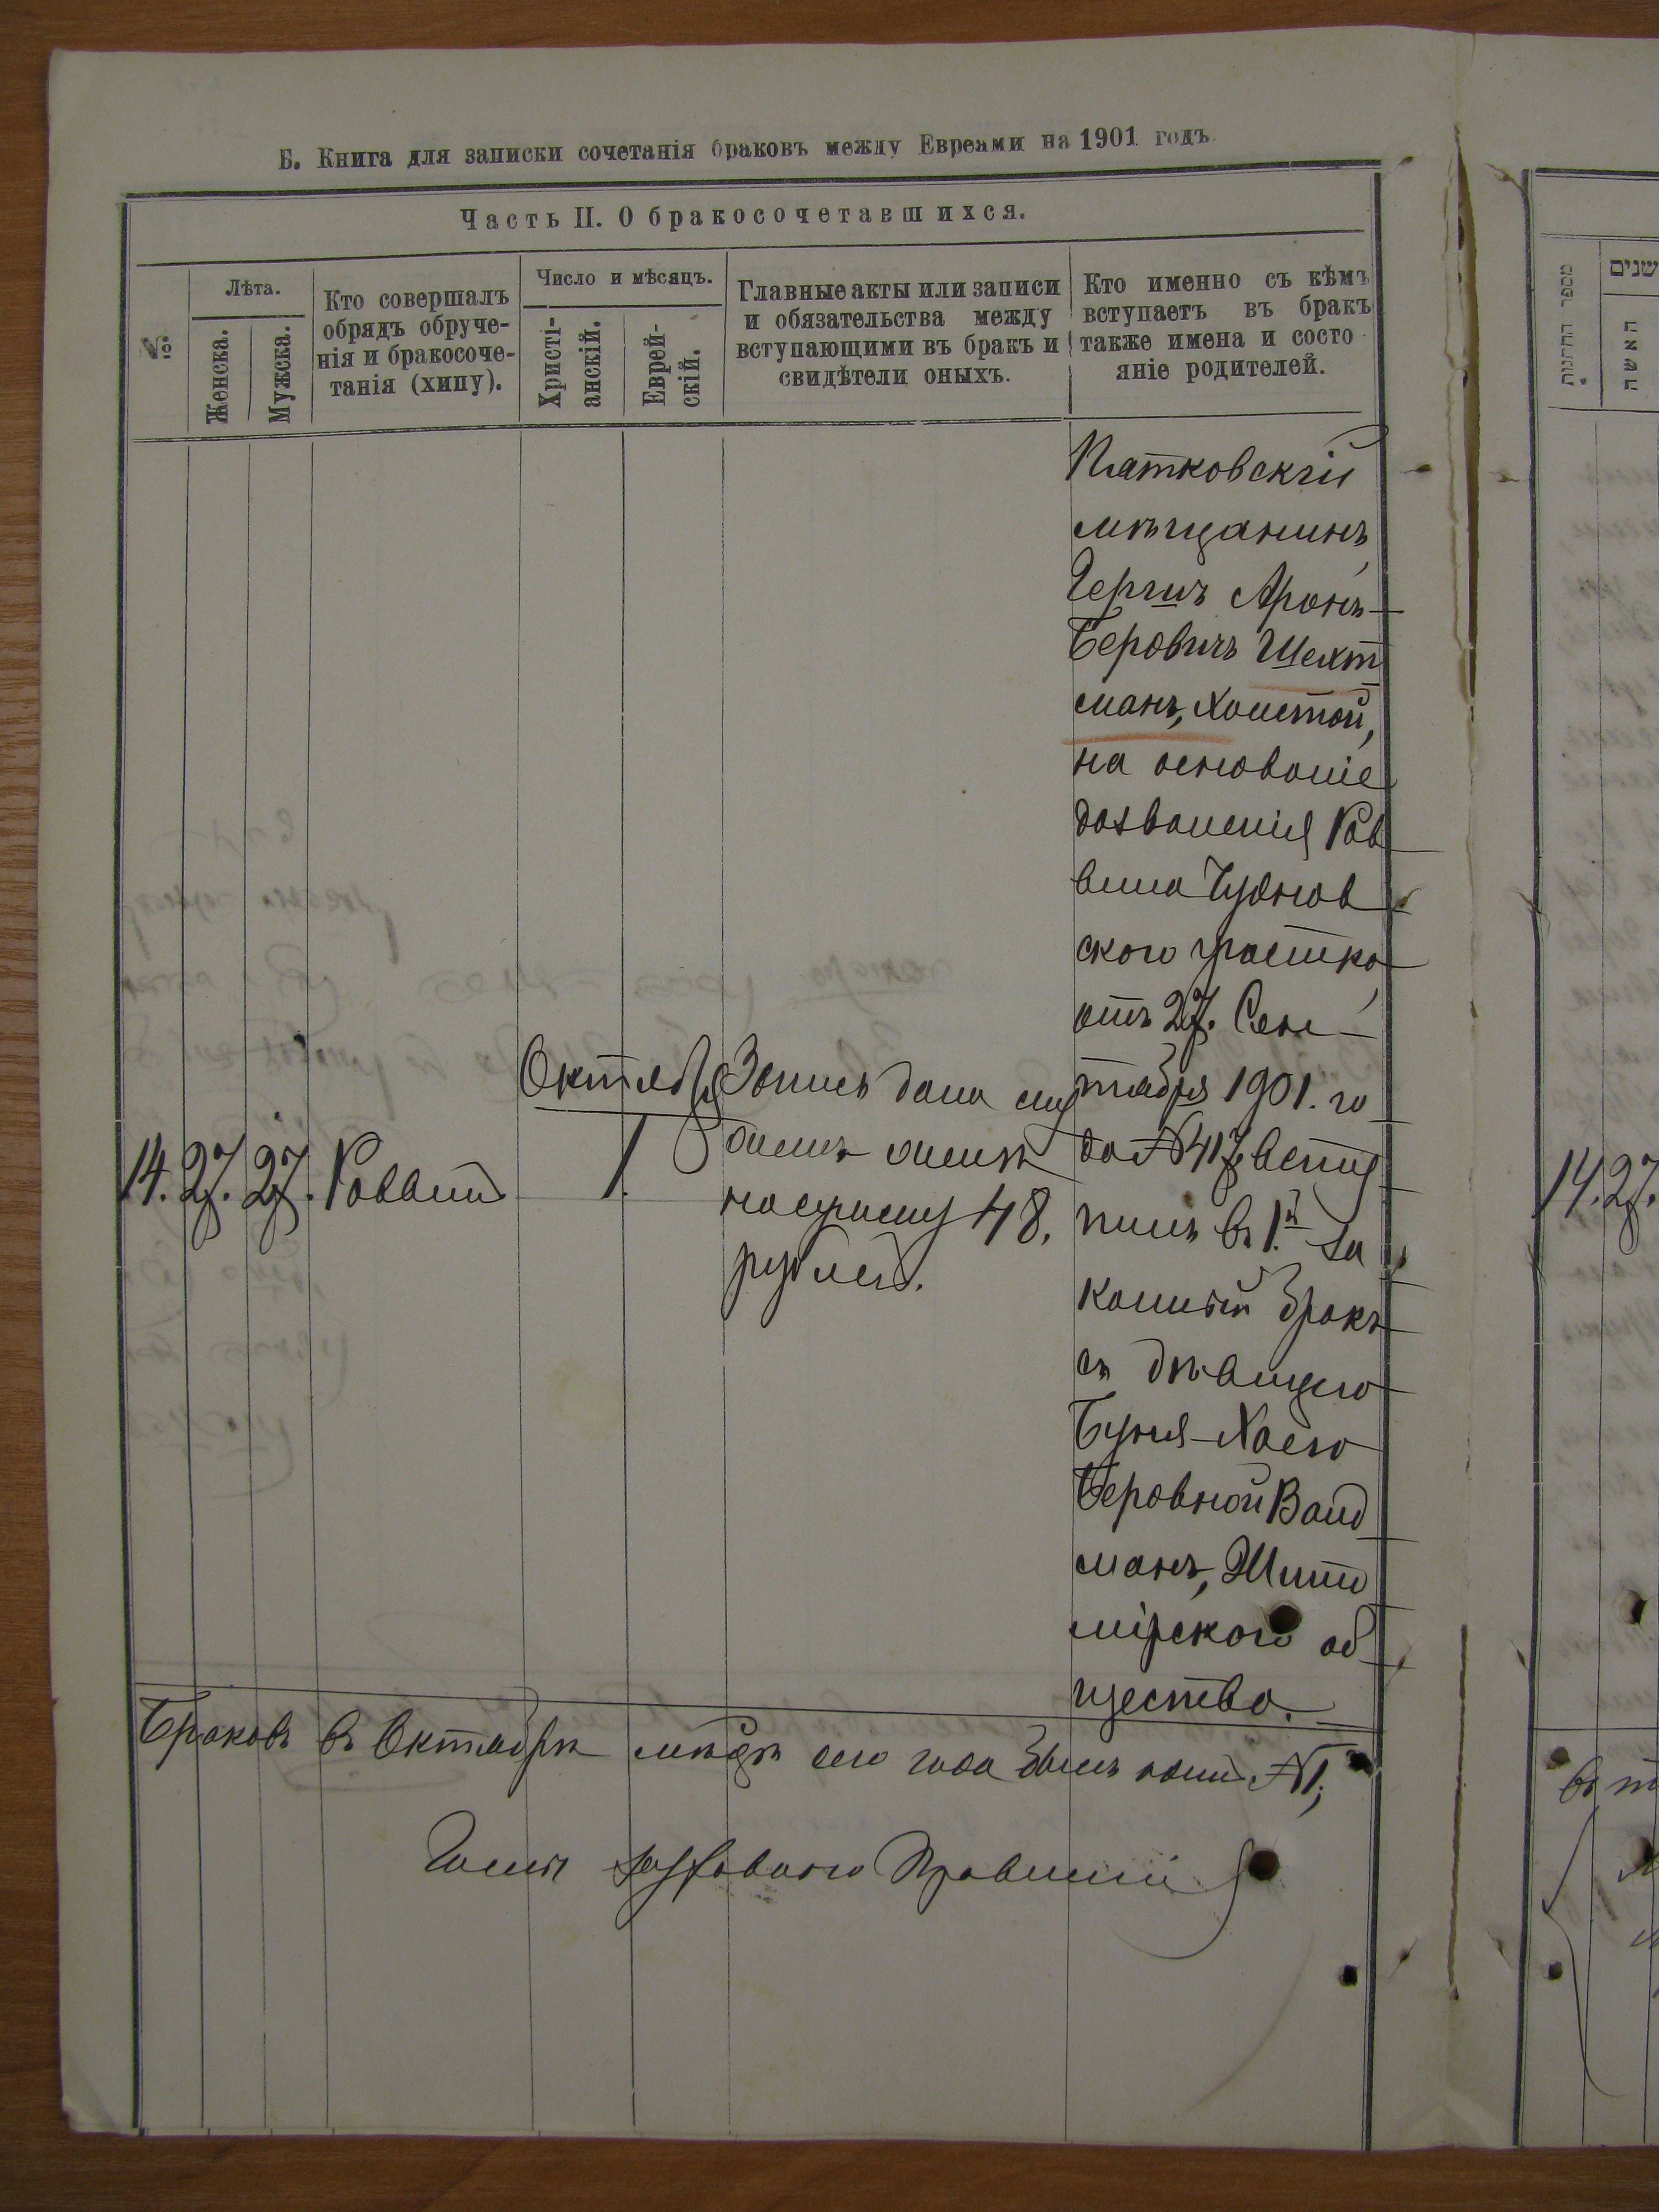 Б. Книга для записки сочетанія браковъ между Евреами на 1901 годъ.
Часть II. О бракосочетавшихся.
№
Лѣта.
Женска.
Мужска.
Кто совершалъ
обрядъ обруче-
нія и бракосоче-
танія (хипу).
Число и мѣсяцъ.
Христі-
анскій.
Еврей-
скій.
Главные акты или записи
и обязательства между
вступающими въ бракъ и
свидѣтели оныхъ.
Кто именно съ кѣмъ
вступаетъ въ бракъ
также имена и состо
яніе родителей.
14. 27. 27. Раввинъ
Октября
1.
Запись дана
на сумму 48.
рублей.
Пятковскій
мѣщанинъ,
Гершъ Аронъ-
Беровичъ Шехт
манъ, холостой,
на основаніе
дозволенія Рав
вина Чуднов
ского участка,
отъ 27. Сен-
тября 1901. го
да № 417, всту
пилъ въ 1.й за
конный бракъ
съ дѣвицею
Буня-Хаею
Беровной Ванд
манъ, Жито
мірского об
щества.
Браковъ въ Октябрѣ мѣсцѣ сего года былъ одинъ № 1,
Члены Духовного Правленія
מספר החתונות
שנים
האשה
14. 27.